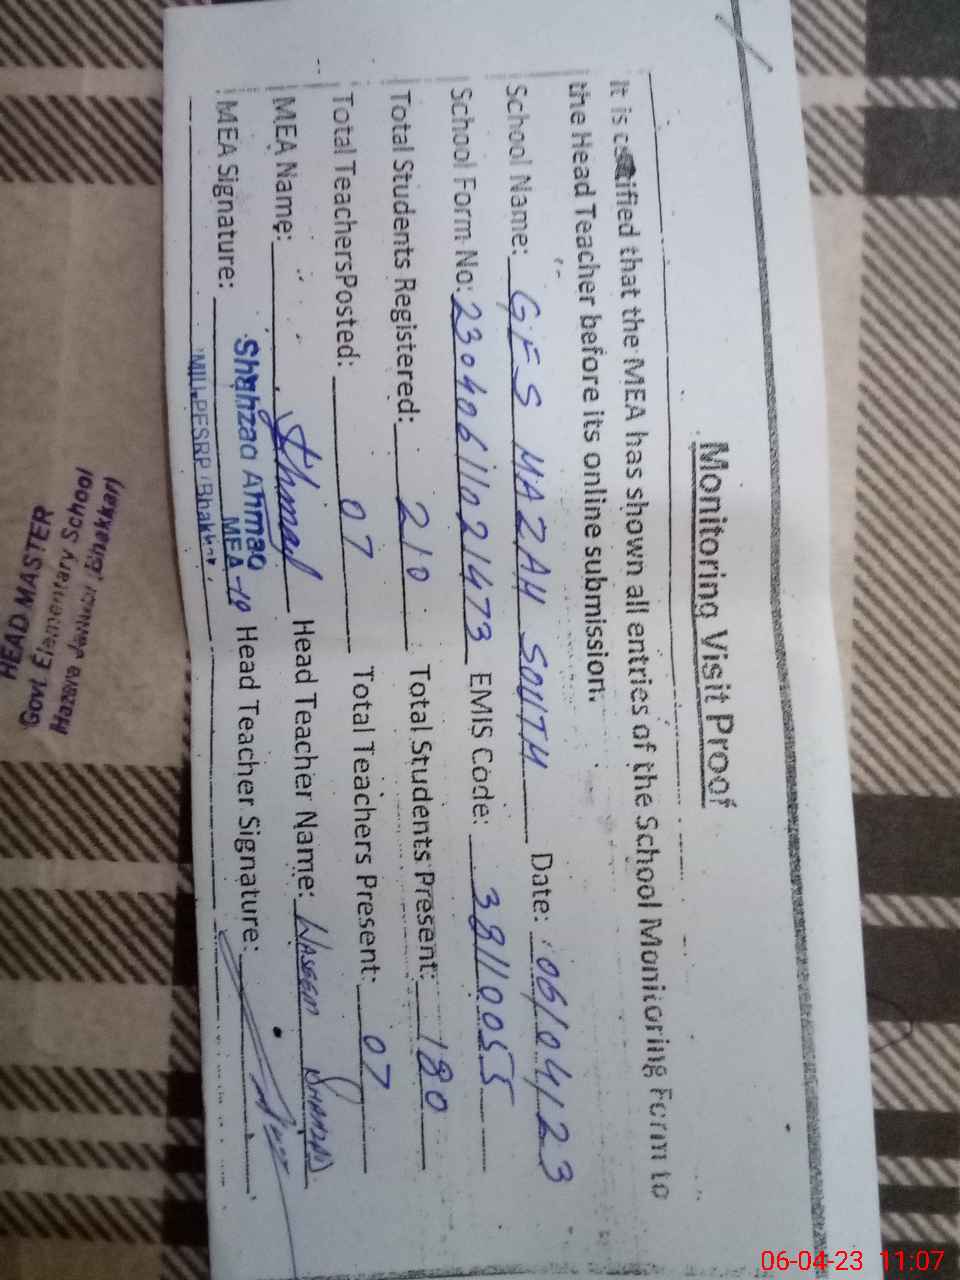 Monitoring Visit Proof
It is certified that the MEA has shown all entries of the School Monitoring Form to
the Head Teacher before its online submission.
School Name: GES HAZAH SOUTH Date: 06/04/23
School Form No: 23040611021473 EMIS Code: 38110055
Total Students Registered: 210 Total Students Present: 180
Total TeachersPosted: 07 Total Teachers Present: 07
MEA Name: Head Teacher Name: WASEEM
MEA Signature: Shahzad Ahmad Head Teacher Signature:
MEA-10
PESRP (Bhakkar)
HEAD MASTER
Govt Elementary School
(Bhakkar)
06-04-23 11:07